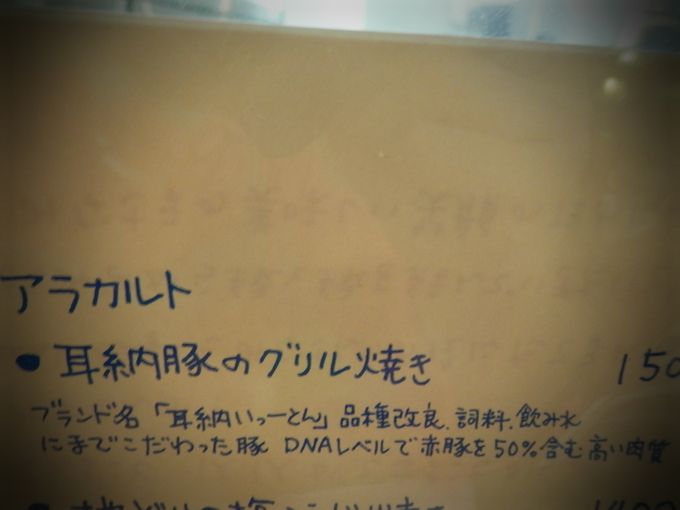 アラカルト
• 耳納豚のグリル焼き 150
ブランド名「耳納いっーとん」品種改良、詞料、飲み水
にまでこだわった豚 DNAレベルで赤豚を50%含む高い肉質